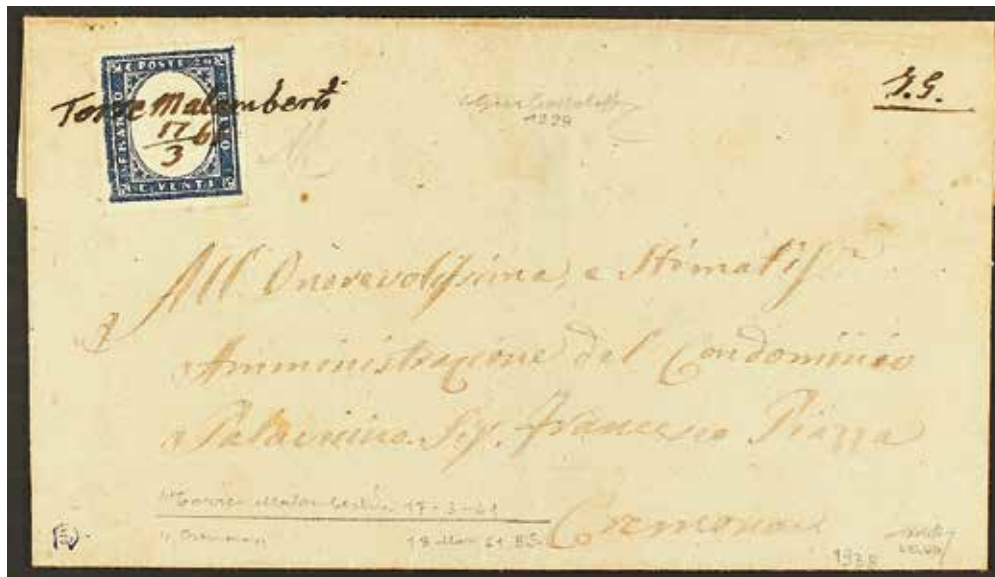 C. POSTE 20
FRANCO
BOLLO
C. VENTI
Torre Malamberti
17/3 61
J.G.
1229
All' Onorevolissima, e Stimatiss.
Amministrazione del Condominio
Palavicino. Sig. Francesco Piazza
Cremona
Torre Malamberti 17-3-61
18 Mar 61
1938